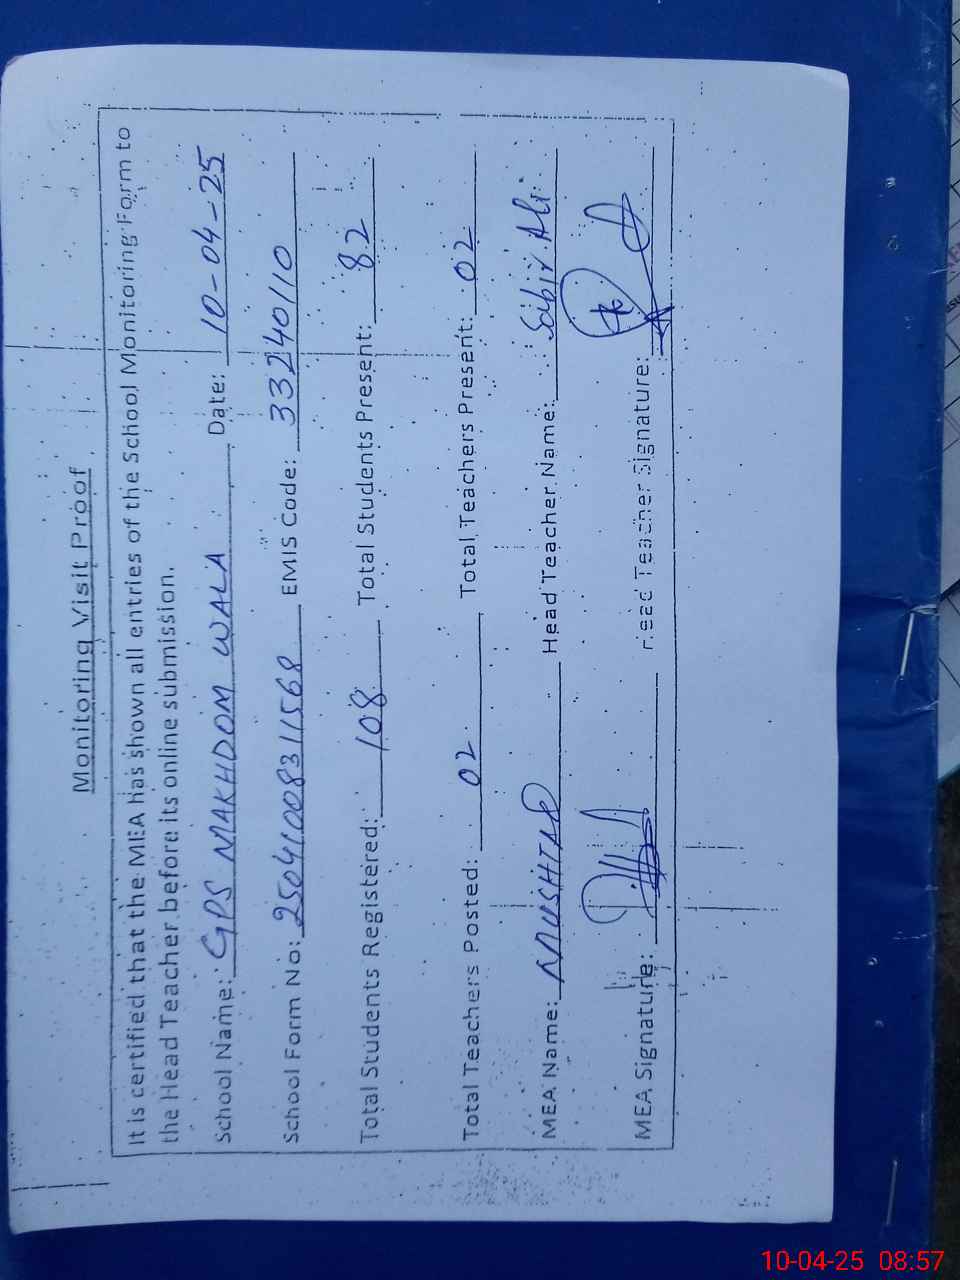 Monitoring Visit Proof
It is certified that the MEA has shown all entries of the School Monitoring Form to
the Head Teacher before its online submission.
School Name: GPS MAKHDOM WALA Date: 10-04-25
School Form No: 25041008311568 EMIS Code: 33240110
Total Students Registered: 108 Total Students Present: 82
Total Teachers Posted: 02 Total Teachers Present: 02
MEA Name: MUSHTAQ Head Teacher Name: Sabir Ali
MEA Signature: Head Teacher Signature:
10-04-25 08:57